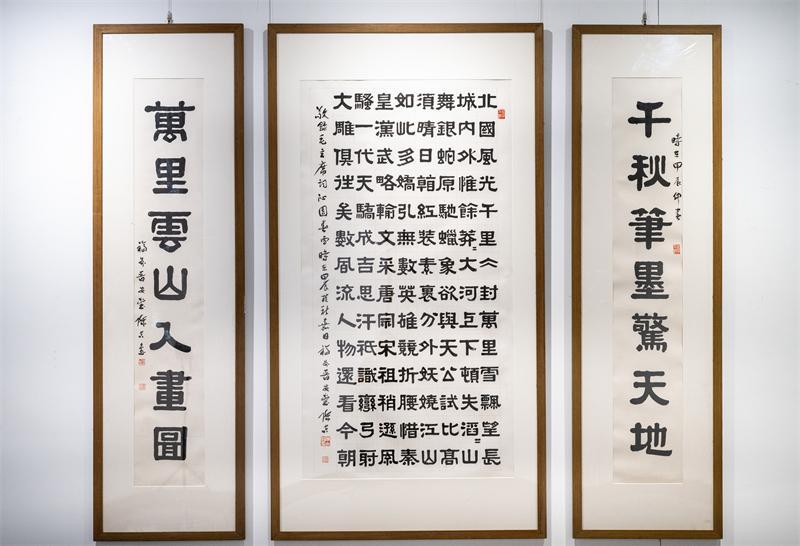 千秋筆墨驚天地
時在甲辰仲春
北國風光千里冰封萬里雪飄望長
城內外惟餘莽〻大河上下頓失滔〻山
舞銀蛇原馳蠟象欲與天公試比高
須晴日看紅裝素裹分外妖嬈江山
如此多嬌引無數英雄競折腰惜秦
皇漢武略輸文采唐宗宋祖稍遜風
騷一代天驕成吉思汗衹識彎弓射
大雕俱往矣數風流人物還看今朝
敬錄毛主席詞沁園春雪時在甲辰嘉日
萬里雲山入畫圖